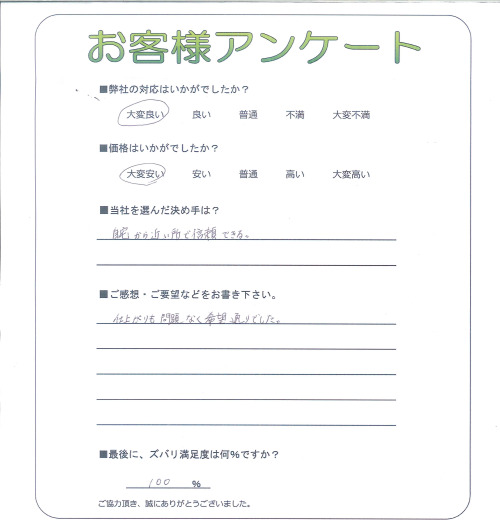 お客様アンケート
■弊社の対応はいかがでしたか?
大変良い 良い 普通 不満 大変不満
■価格はいかがでしたか?
大変安い 安い 普通 高い 大変高い
■当社を選んだ決め手は?
自宅から近い所で信頼できる。
■ご感想・ご要望などをお書き下さい。
仕上がりも問題なく希望通りでした。
■最後に、ズバリ満足度は何%ですか?
100 %
ご協力頂き、誠にありがとうございました。